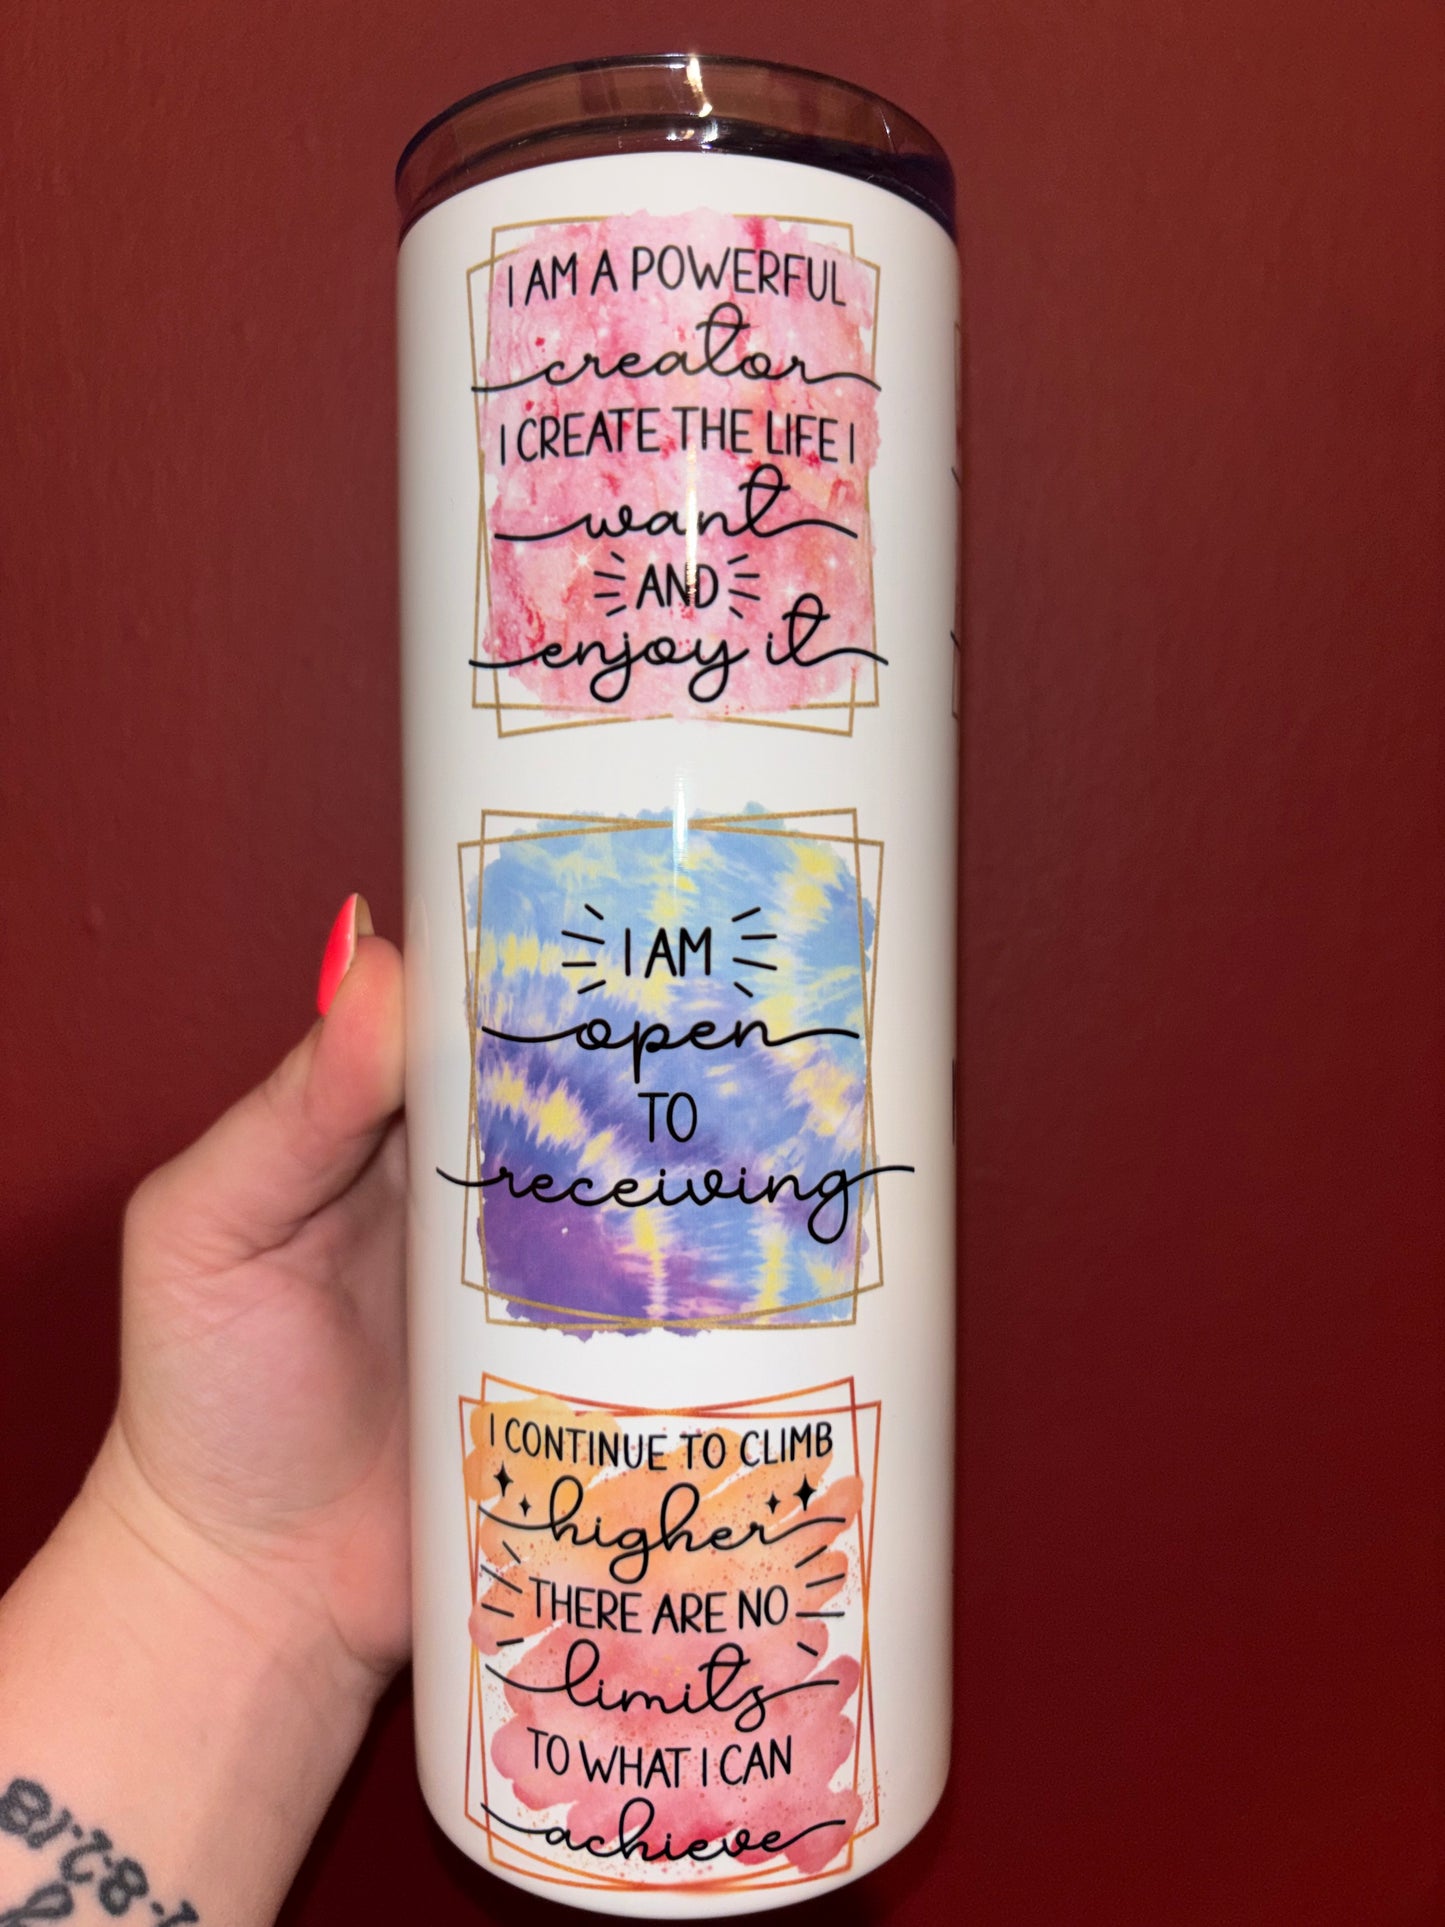 I AM A POWERFUL
creator
I CREATE THE LIFE I
want
AND
enjoy it
I AM
open
TO
receiving
I CONTINUE TO CLIMB
higher
THERE ARE NO
limits
TO WHAT I CAN
achieve